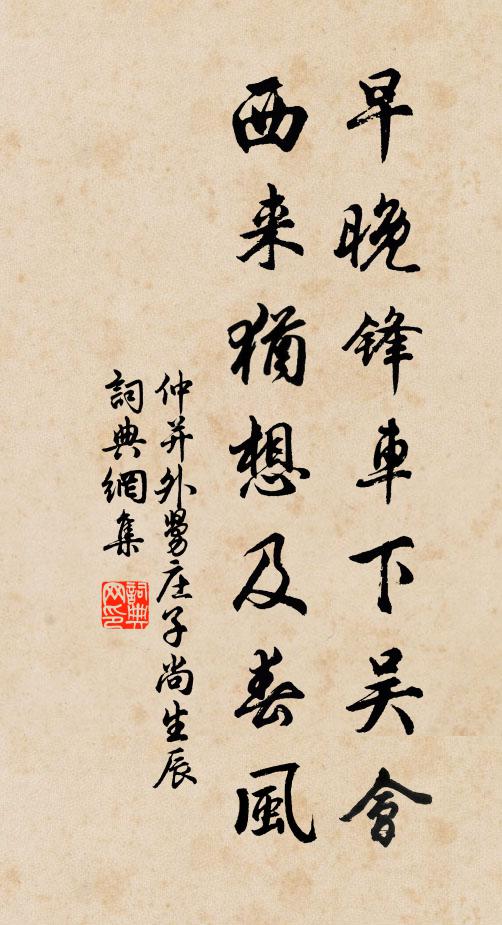 早晚锋車下吴會
西来猶想及春風
仲并外舅庄子尚生辰
詞典網集
詞典网印